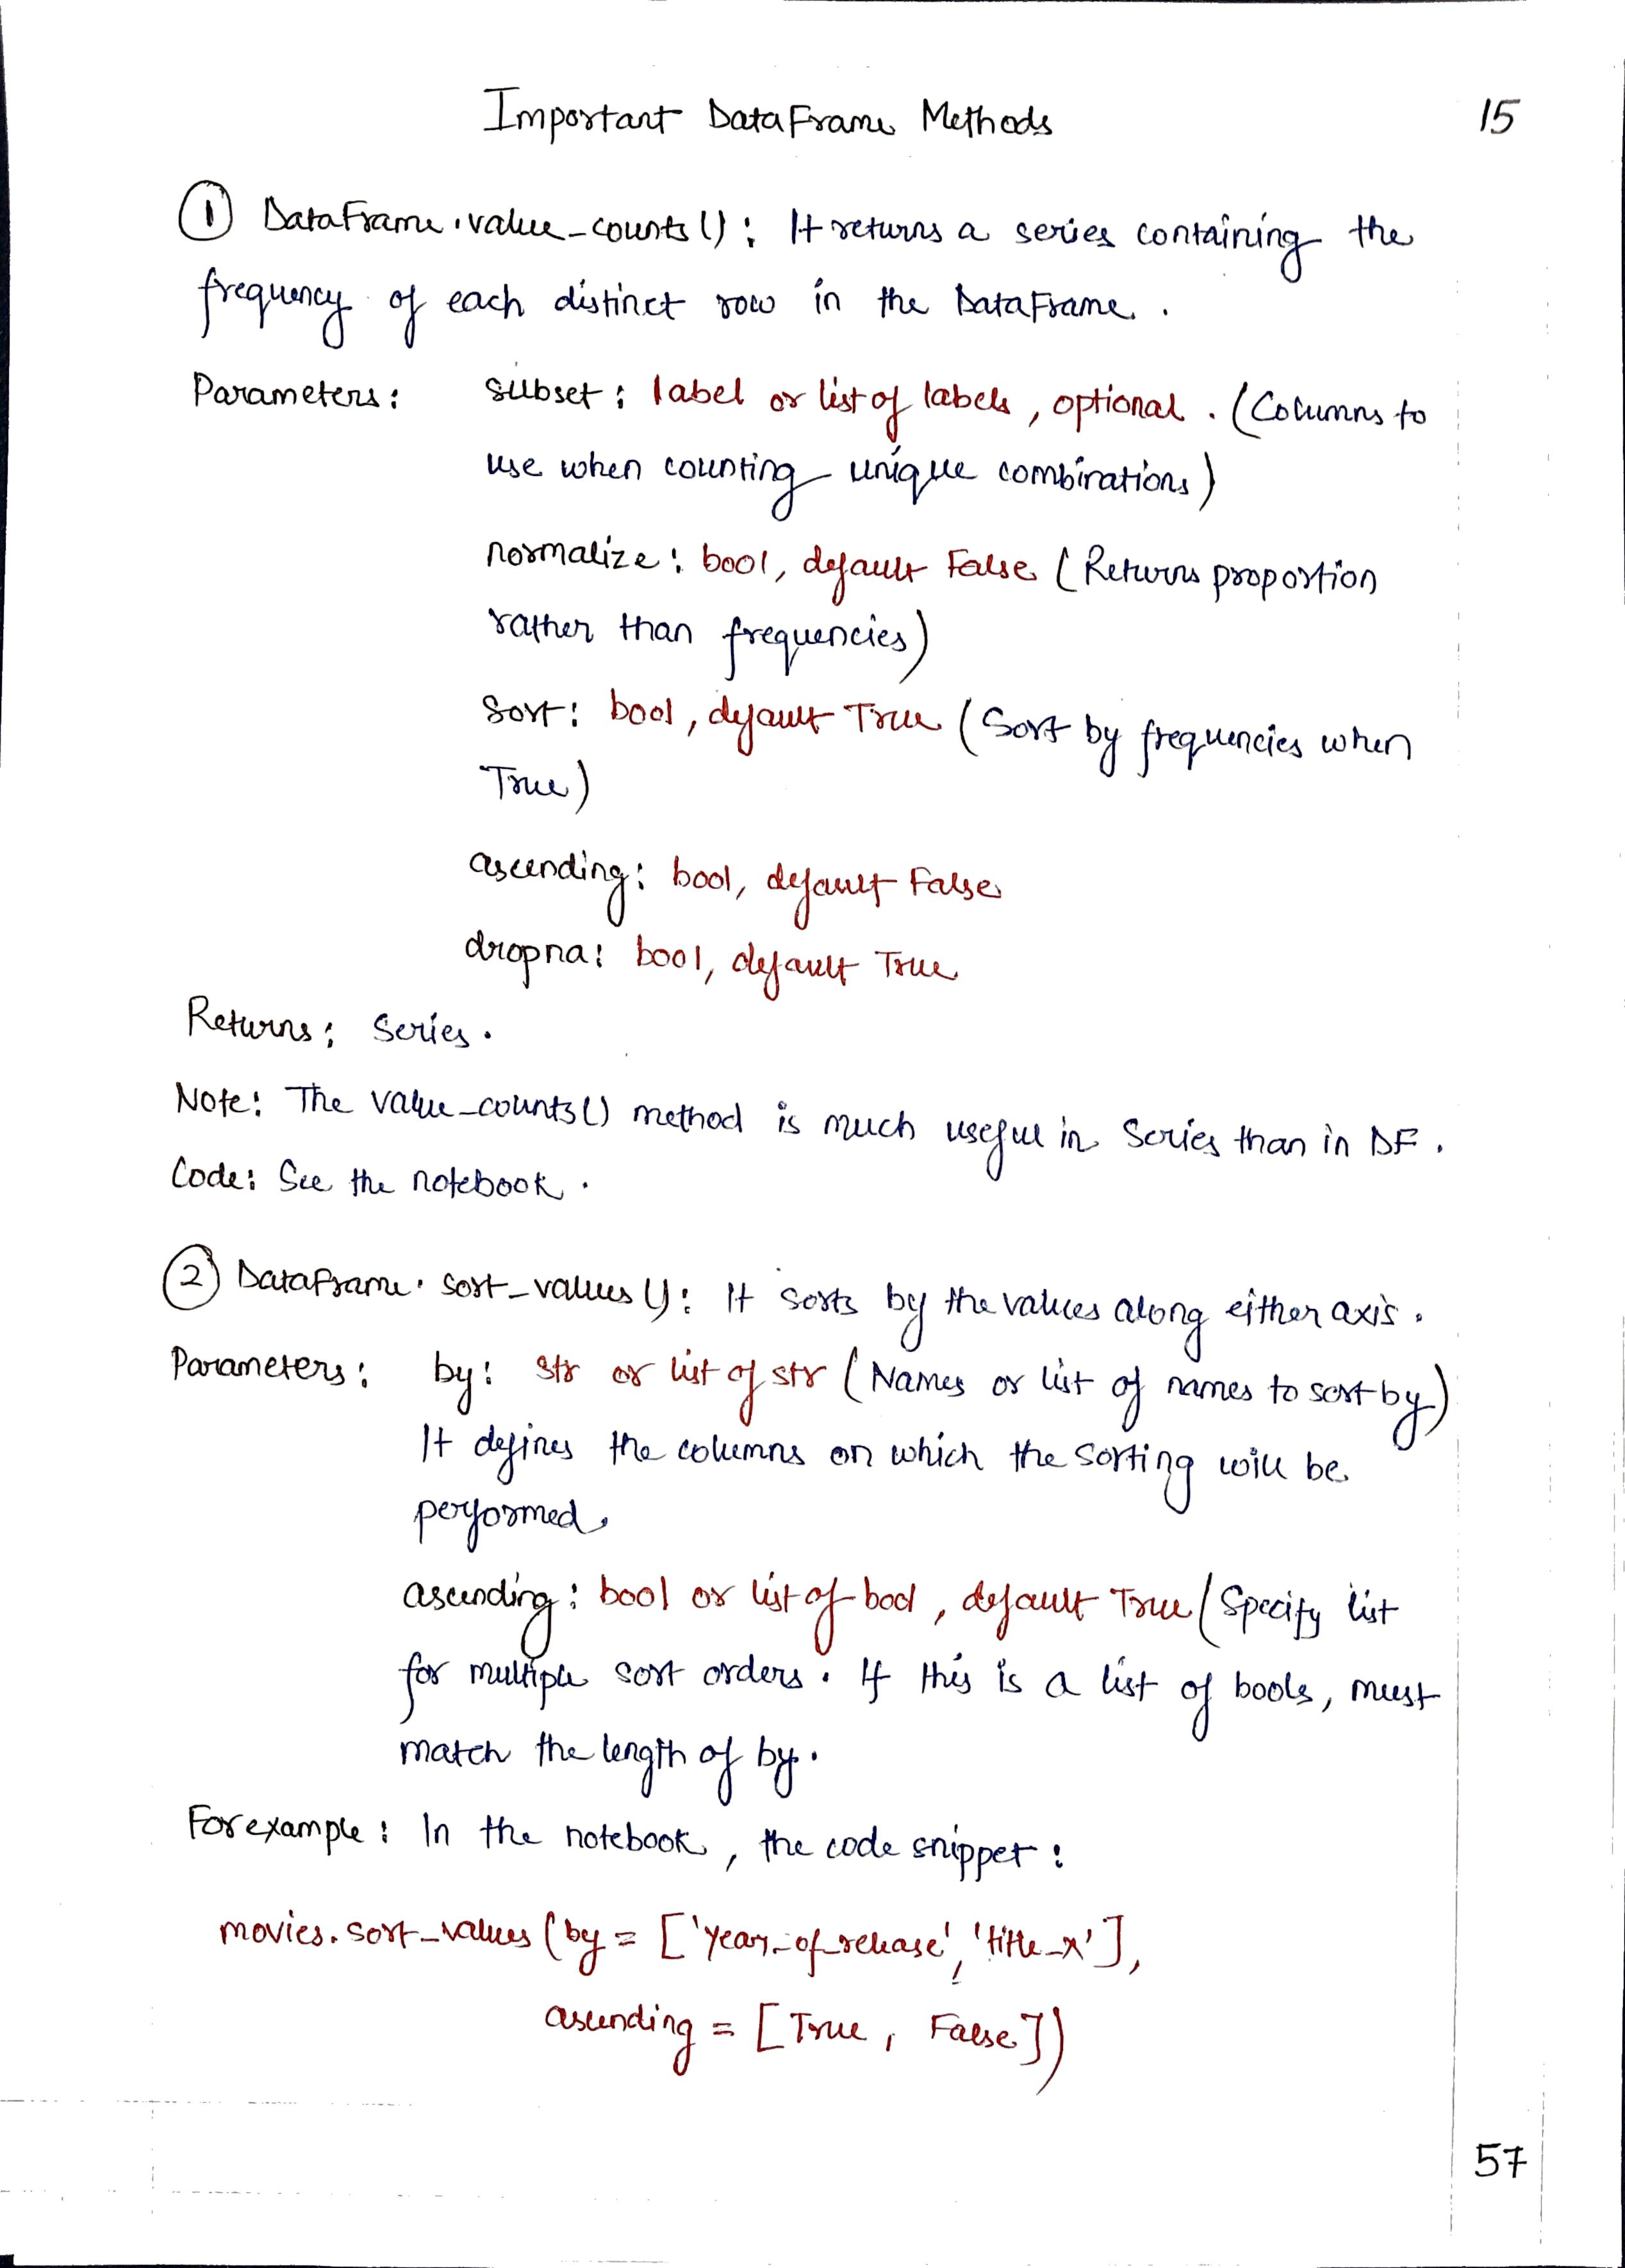 Important DataFrame Methods 15
① DataFrame.value_counts(): It returns a series containing the
frequency of each distinct row in the DataFrame.
Parameters: subset: label or list of labels, optional. (Columns to
use when counting unique combinations)
normalize: bool, default False (Returns proportion
rather than frequencies)
Sort: bool, default True (Sort by frequencies when
True)
ascending: bool, default False
dropna: bool, default True
Returns: Series.
Note: The value_counts() method is much useful in Series than in DF.
Code: See the notebook.
② DataFrame.sort_values(): It sorts by the values along either axis.
Parameters: by: str or list of str (Names or list of names to sort by)
It defines the columns on which the sorting will be
performed.
ascending: bool or list of bool, default True (Specify list
for multiple sort orders. If this is a list of bools, must
match the length of by.
For example: In the notebook, the code snippet:
movies.sort_values(by = ['year_of_release', 'title_x'],
ascending = [True, False])
57